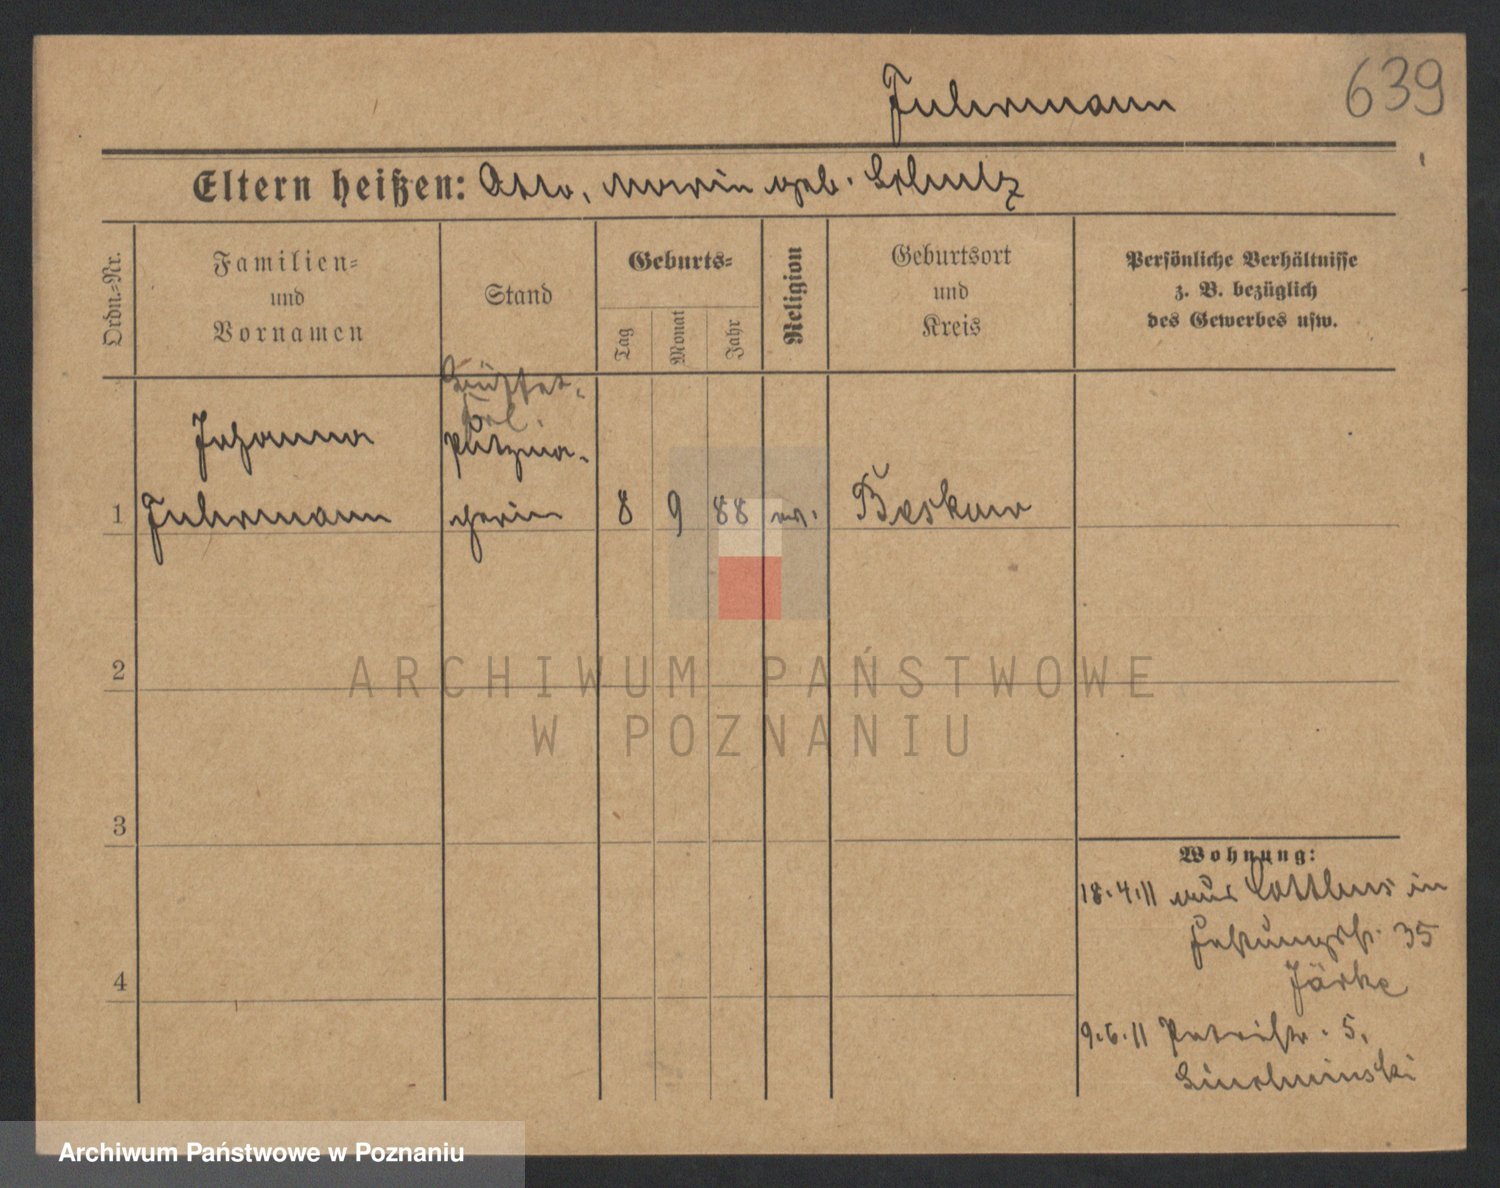 Fuhrmann
639
Eltern heißen: Otto, Marie geb. Schulz
Ordn.-Nr.
Familien-
und
Vornamen
Stand
Geburts-
Tag
Monat
Jahr
Religion
Geburtsort
und
Kreis
Persönliche Verhältnisse
z. B. bezüglich
des Gewerbes usw.
Büffet-
frl.
Johanna
Putzma-
1 Fuhrmann
cherin 8 9 88 ev. Beskow
2
3
4
Wohnung:
18.4.11 aus Cottbus in
Festungsstr. 35
Järke
9.6.11 Patristr. 5.
ARCHIWUM PAŃSTWOWE
W POZNANIU
Archiwum Państwowe w Poznaniu